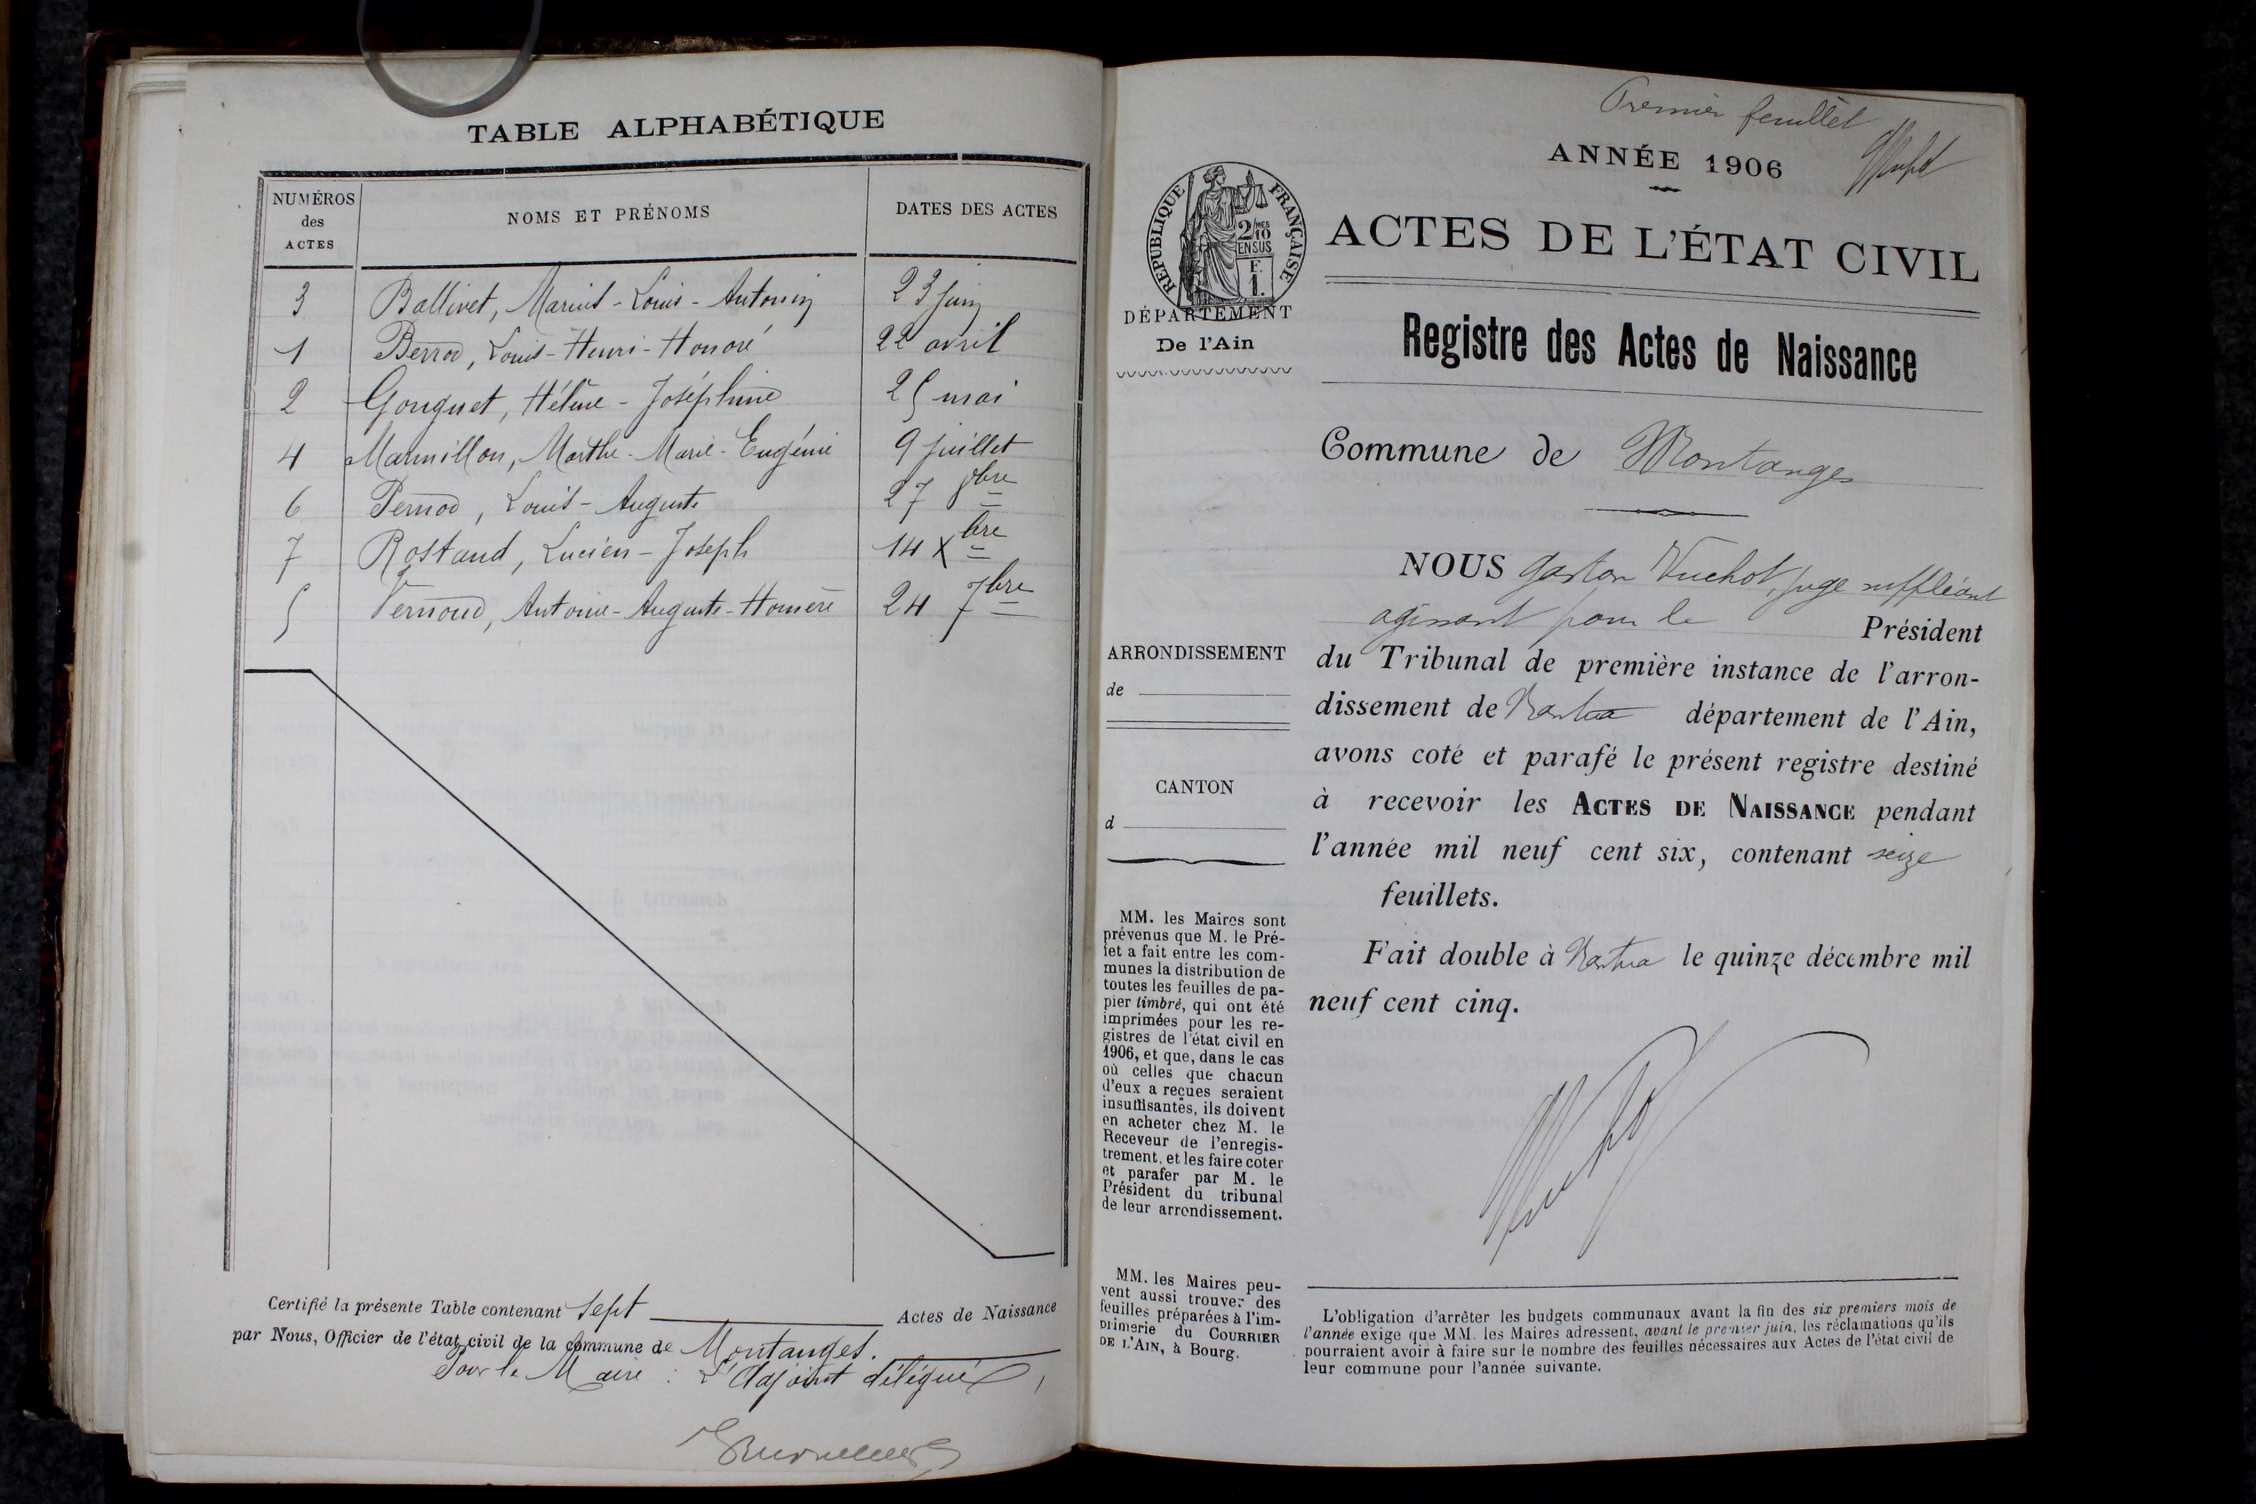 TABLE ALPHABÉTIQUE
NUMÉROS des ACTES
NOMS ET PRÉNOMS
DATES DES ACTES
3 Ballivet, Marius-Louis-Antonin 23 juin
1 Berrod, Louis-Henri-Honoré 22 avril
2 Gouguet, Hélène-Joséphine 25 mai
4 Marmillon, Marthe-Marie-Eugénie 9 juillet
6 Pernod, Louis-Auguste 27 8bre
7 Rostand, Lucien-Joseph 14 Xbre
5 Vernoud, Antoine-Auguste-Homère 24 7bre
Certifié la présente Table contenant sept Actes de Naissance
par Nous, Officier de l'état civil de la commune de Montanges.
Pour le Maire : L'Adjoint délégué,
Premier feuillet
ANNÉE 1906
RÉPUBLIQUE FRANÇAISE
2/10MES
EN SUS
F.
1.
ACTES DE L'ÉTAT CIVIL
DÉPARTEMENT
De l'Ain
Registre des Actes de Naissance
Commune de Montanges
NOUS Gaston Vuchot, juge suppléant
agissant pour le Président
du Tribunal de première instance de l'arron-
dissement de Nantua département de l'Ain,
avons coté et parafé le présent registre destiné
à recevoir les ACTES DE NAISSANCE pendant
l'année mil neuf cent six, contenant seize
feuillets.
Fait double à Nantua le quinze décembre mil
neuf cent cinq.
ARRONDISSEMENT
de
CANTON
d
MM. les Maires sont
prévenus que M. le Pré-
fet a fait entre les com-
munes la distribution de
toutes les feuilles de pa-
pier timbré, qui ont été
imprimées pour les re-
gistres de l'état civil en
1906, et que, dans le cas
où celles que chacun
d'eux a reçues seraient
insuffisantes, ils doivent
en acheter chez M. le
Receveur de l'enregis-
trement, et les faire coter
et parafer par M. le
Président du tribunal
de leur arrondissement.
MM. les Maires peu-
vent aussi trouver des
feuilles préparées à l'im-
primerie du COURRIER
DE L'AIN, à Bourg.
L'obligation d'arrêter les budgets communaux avant la fin des six premiers mois de
l'année exige que MM. les Maires adressent, avant le premier juin, les réclamations qu'ils
pourraient avoir à faire sur le nombre des feuilles nécessaires aux Actes de l'état civil de
leur commune pour l'année suivante.